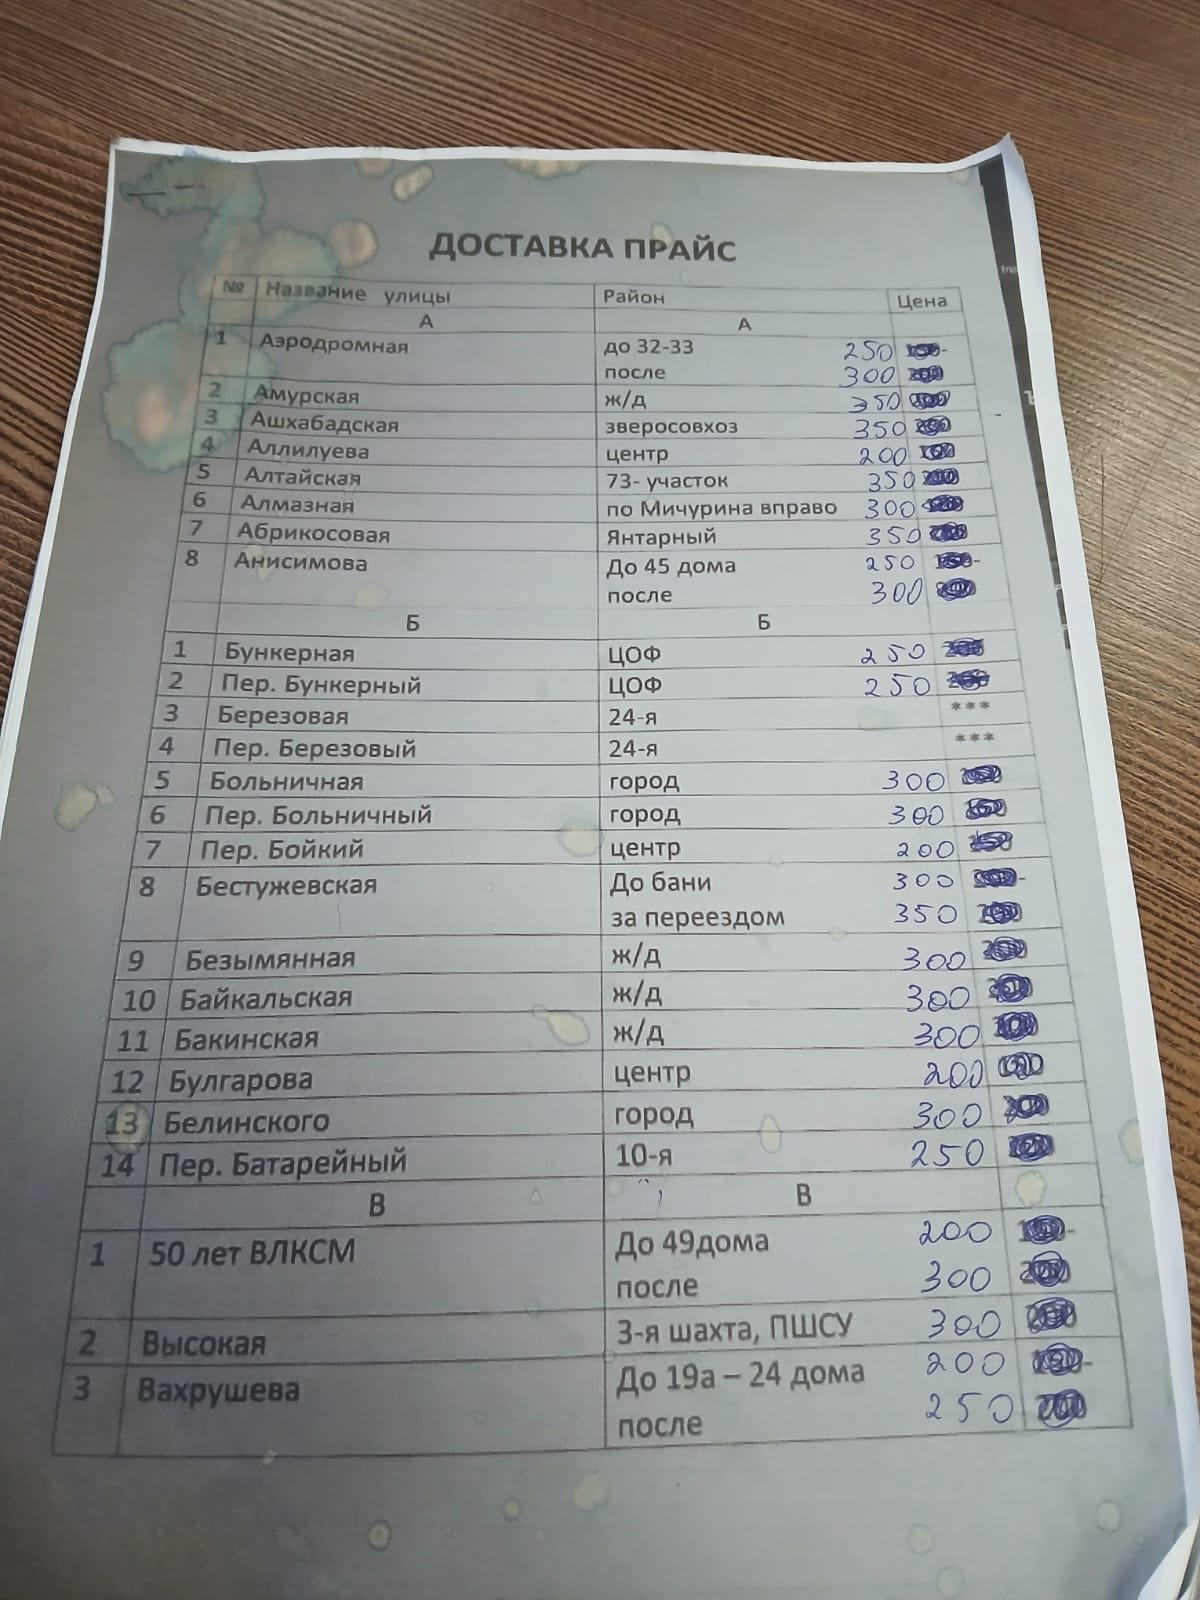 ДОСТАВКА ПРАЙС
№ Название улицы Район Цена
А А
1 Аэродромная до 32-33 250
после 300
2 Амурская ж/д 350
3 Ашхабадская зверосовхоз 350
4 Аллилуева центр 200
5 Алтайская 73- участок 350
6 Алмазная по Мичурина вправо 300
7 Абрикосовая Янтарный 350
8 Анисимова До 45 дома 250
после 300
Б Б
1 Бункерная ЦОФ 250
2 Пер. Бункерный ЦОФ 250
3 Березовая 24-я ***
4 Пер. Березовый 24-я ***
5 Больничная город 300
6 Пер. Больничный город 300
7 Пер. Бойкий центр 200
8 Бестужевская До бани 300
за переездом 350
9 Безымянная ж/д 300
10 Байкальская ж/д 300
11 Бакинская ж/д 300
12 Булгарова центр 200
13 Белинского город 300
14 Пер. Батарейный 10-я 250
В В
1 50 лет ВЛКСМ До 49дома 200
после 300
2 Высокая 3-я шахта, ПШСУ 300
3 Вахрушева До 19а – 24 дома 200
после 250